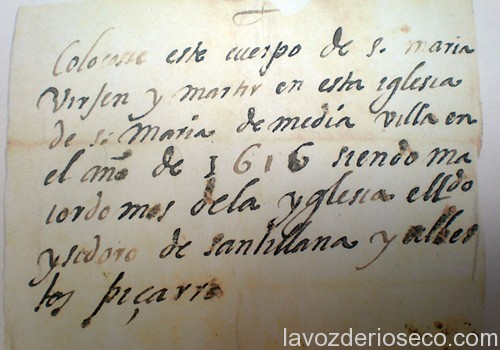 Colocose este cuerpo de s. maria
Virjen y martir en esta iglesia
de s. Maria de media villa en
el año de 1616 siendo ma
iordomos dela yglesia el ldo
ysidoro de santillana y albes
tos piçarro
lavozderioseco.com